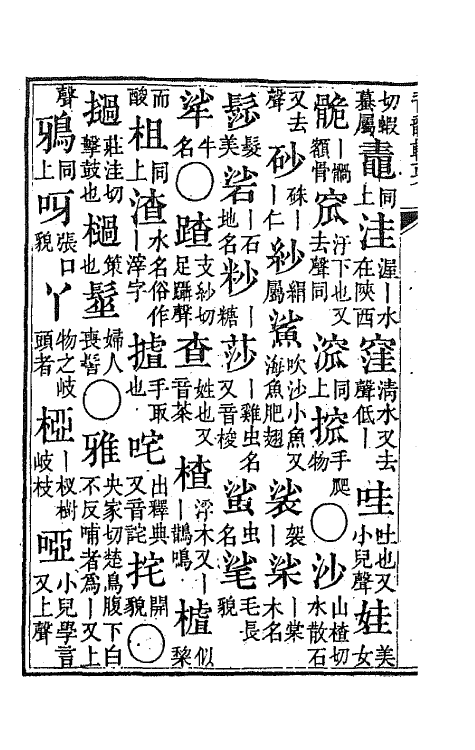 切蝦蟇屬鼃同上洼渥—水在陝西窪清水又去聲低—哇吐也又小兒聲娃美女
—髑額骨窊汙下也又去聲同㴜同上手爬物○沙山楂切水散石
又去聲砂硃—仁紗絹屬鯊吹沙小魚又海魚肥翅裟袈—桬—棠木名
髿髮美硰—石地名粆糖莎—雞虫名又音梭虫名毛長貌
牛名○支紗切足躡聲查姓也又音茶楂浮木又—鵲鳴樝似棃
而酸柤同上渣水名俗作—滓字摣手取也咤出釋典又音詫挓開貌○
撾莊洼切擊鼓也檛策也髽婦人喪髻○雅央家切楚鳥腹下白不反哺者為—又上
聲鴉同上呀張口貌丫物之岐頭者椏—杈樹岐枝啞小兒學言又上聲